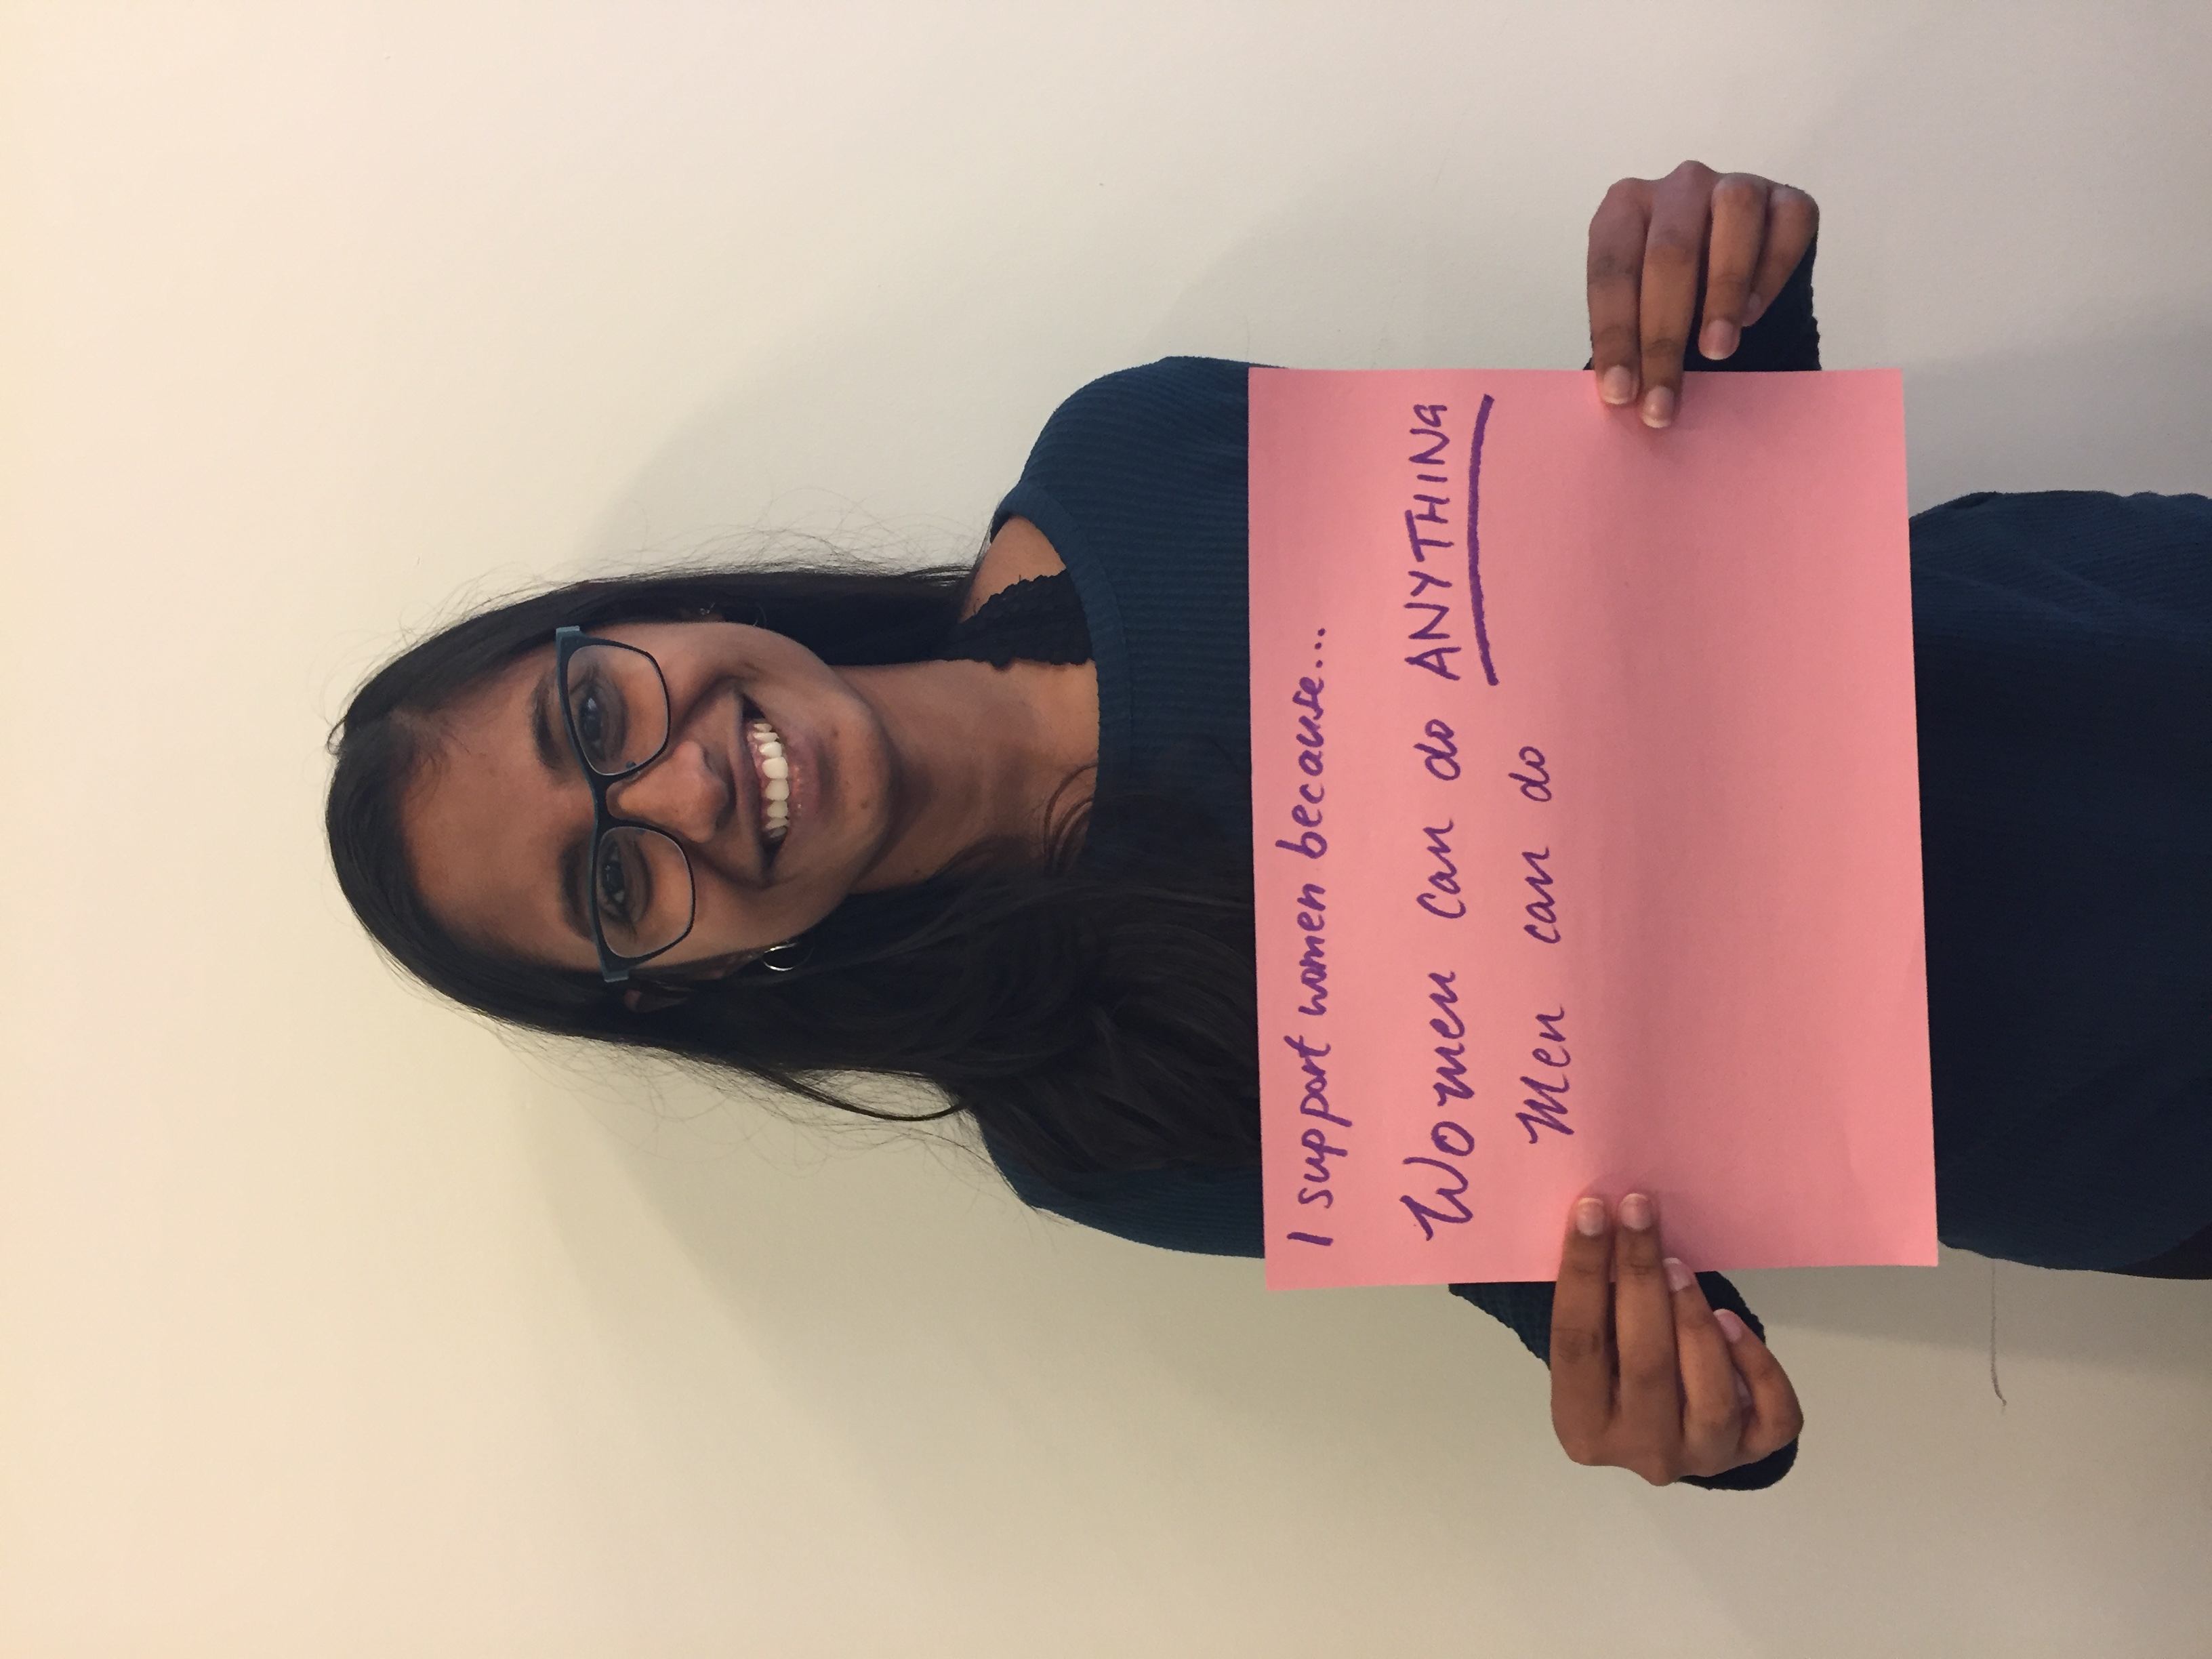 I support women because...
Women can do ANYTHING
Men can do